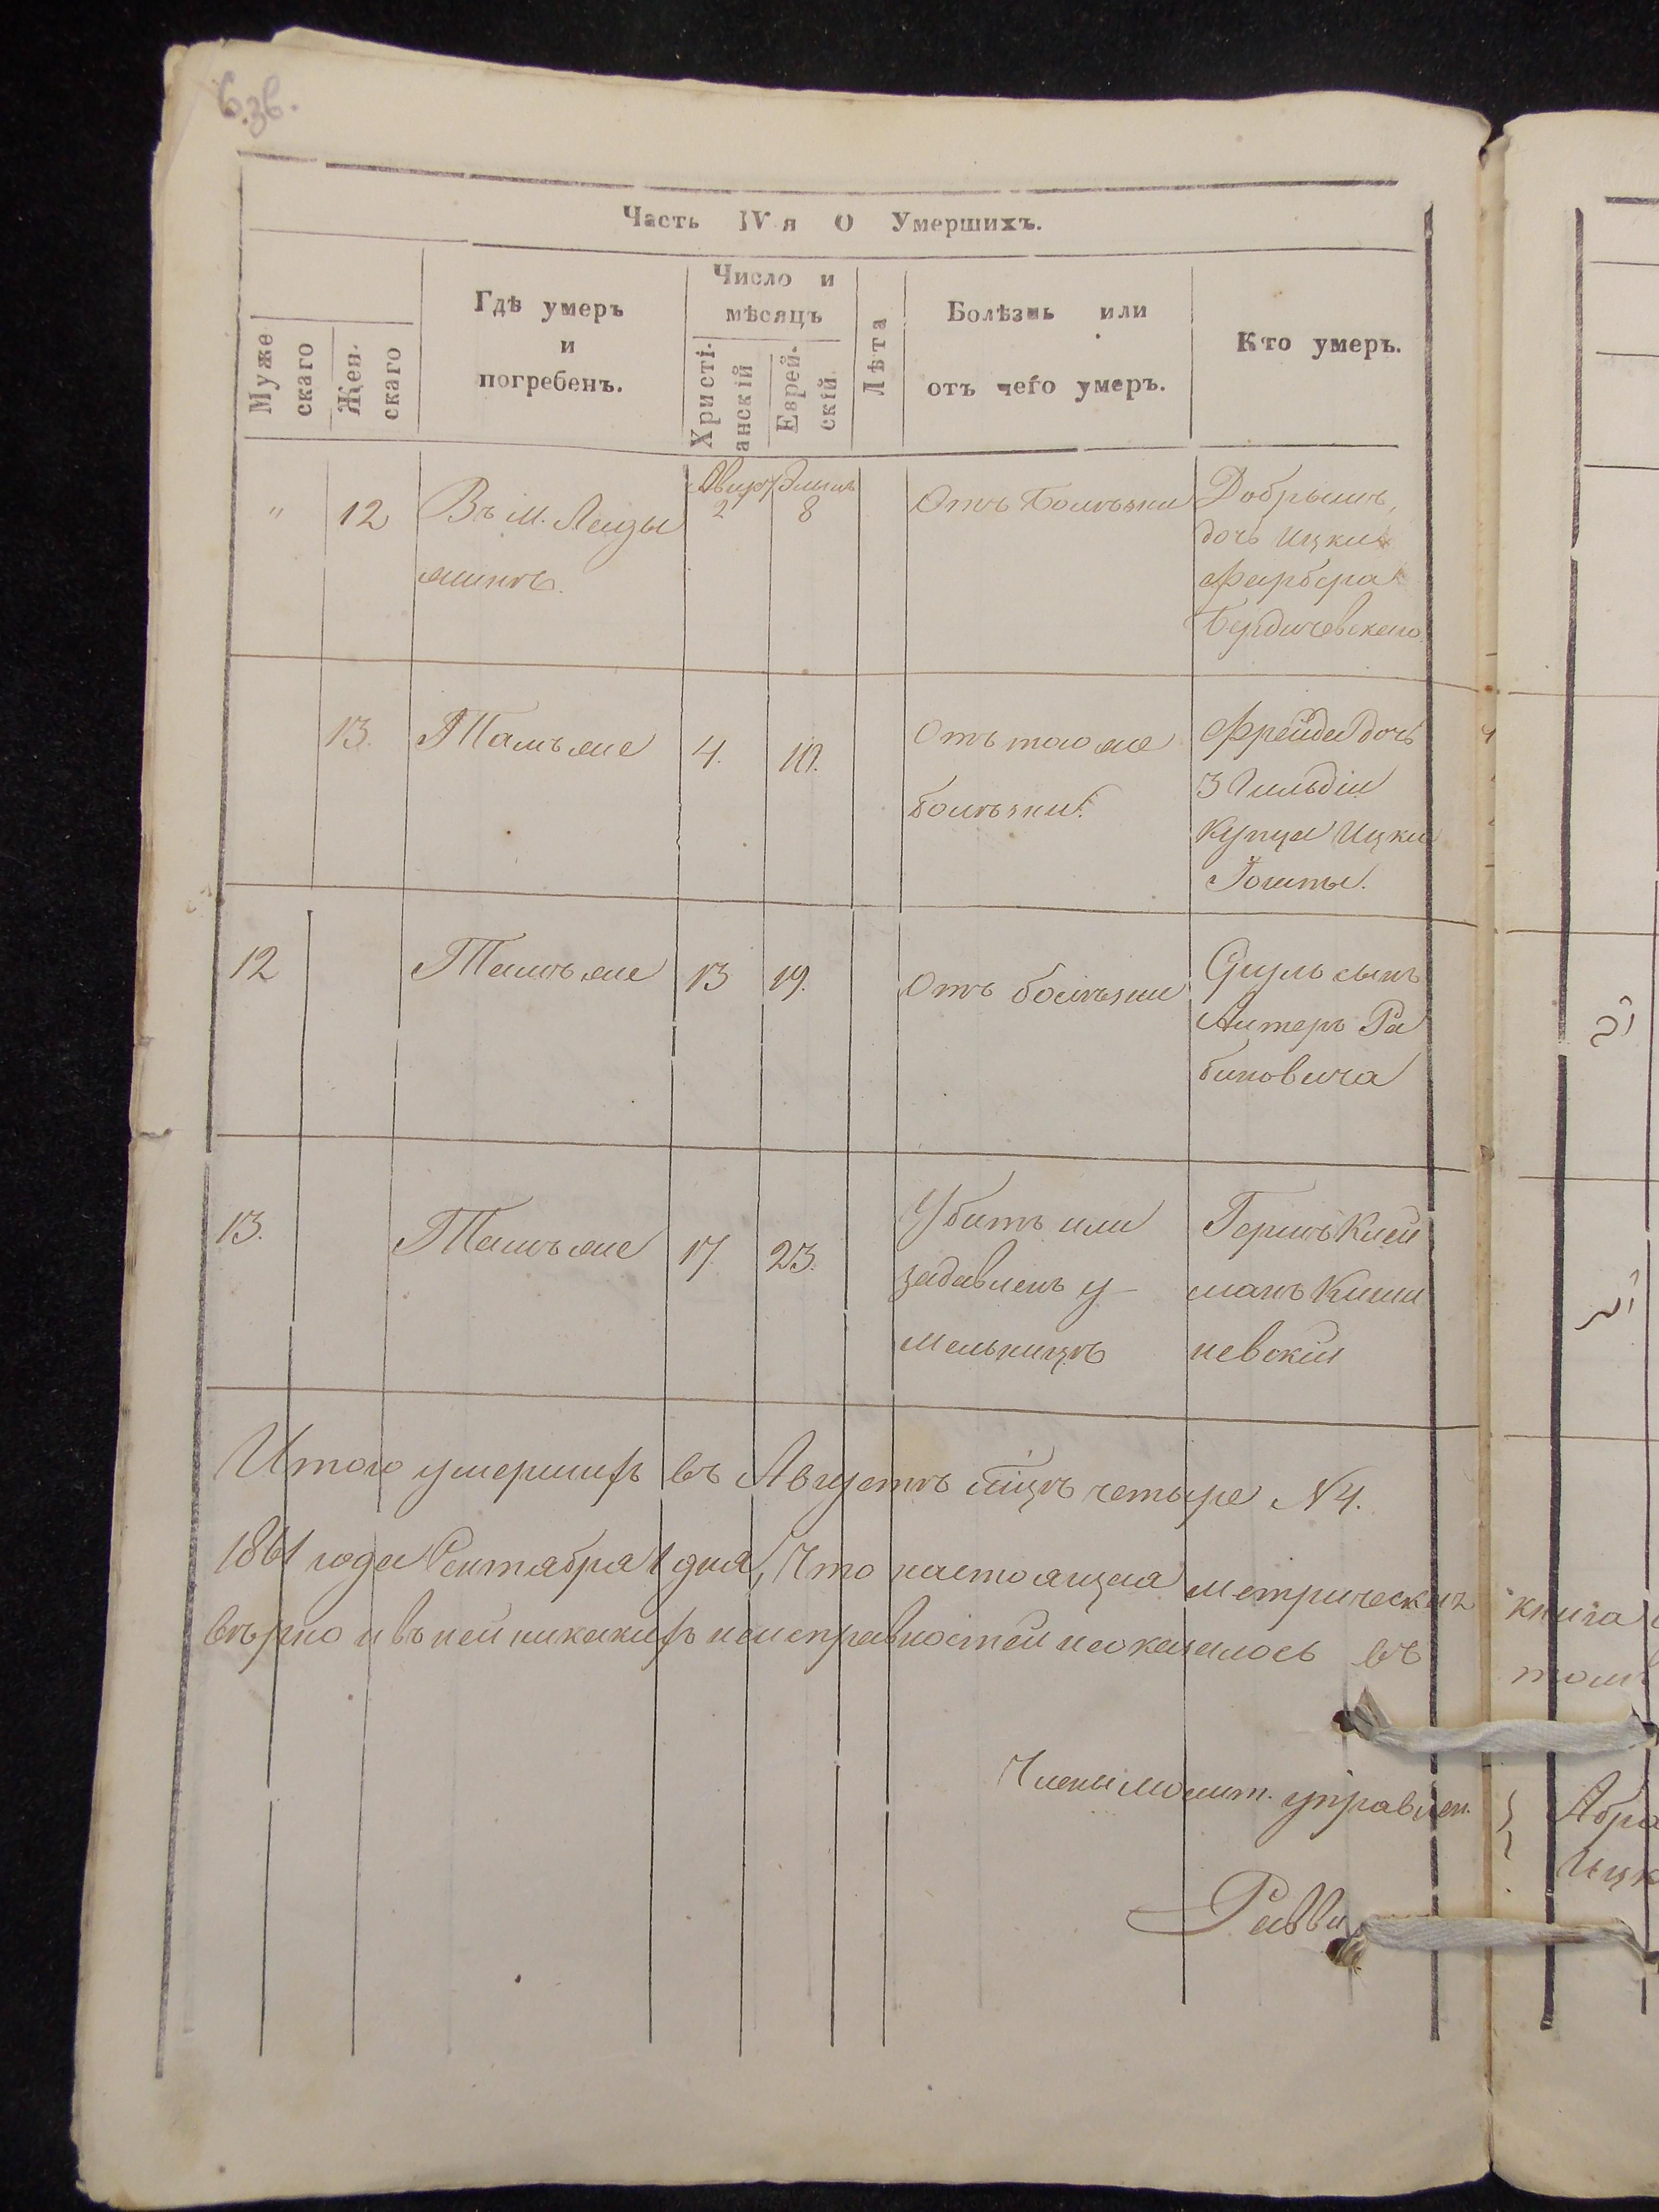 Часть IV я О Умершихъ.
Муже скаго
Жен. скаго
Гдѣ умеръ и погребенъ.
Число и мѣсяцъ
Христі- анскій
Еврей- скій
Лѣта
Болѣзнь или отъ чего умеръ.
Кто умеръ.
" 12 Въ м. Августъ 2 Элилъ 8 Отъ Болѣзни
дочь Ицки
Фарбера
Бердичевскаго
13. Тамъ же 4. 10. Отъ тоже болѣзни.
Фрейда дочь
3 Гильдіи
Купца Ицки
12 Тамъ же 13 19. Отъ болѣзни
Сруль сынъ
Ра
биновича
13. Тамъ же 17. 23.
Убитъ или
задавленъ у
мельницѣ
Гершъ Клей
манъ Киши
невскій
Итого умершихъ въ Августѣ мцѣ четыре №4.
1861 года Сентября 1 дня, Что настоящая метрическая книга
вѣрно и въ ней никакихъ неисправностей неоказалось въ томъ
Члены молит. управлен. }
Абра
Ицк
Равви